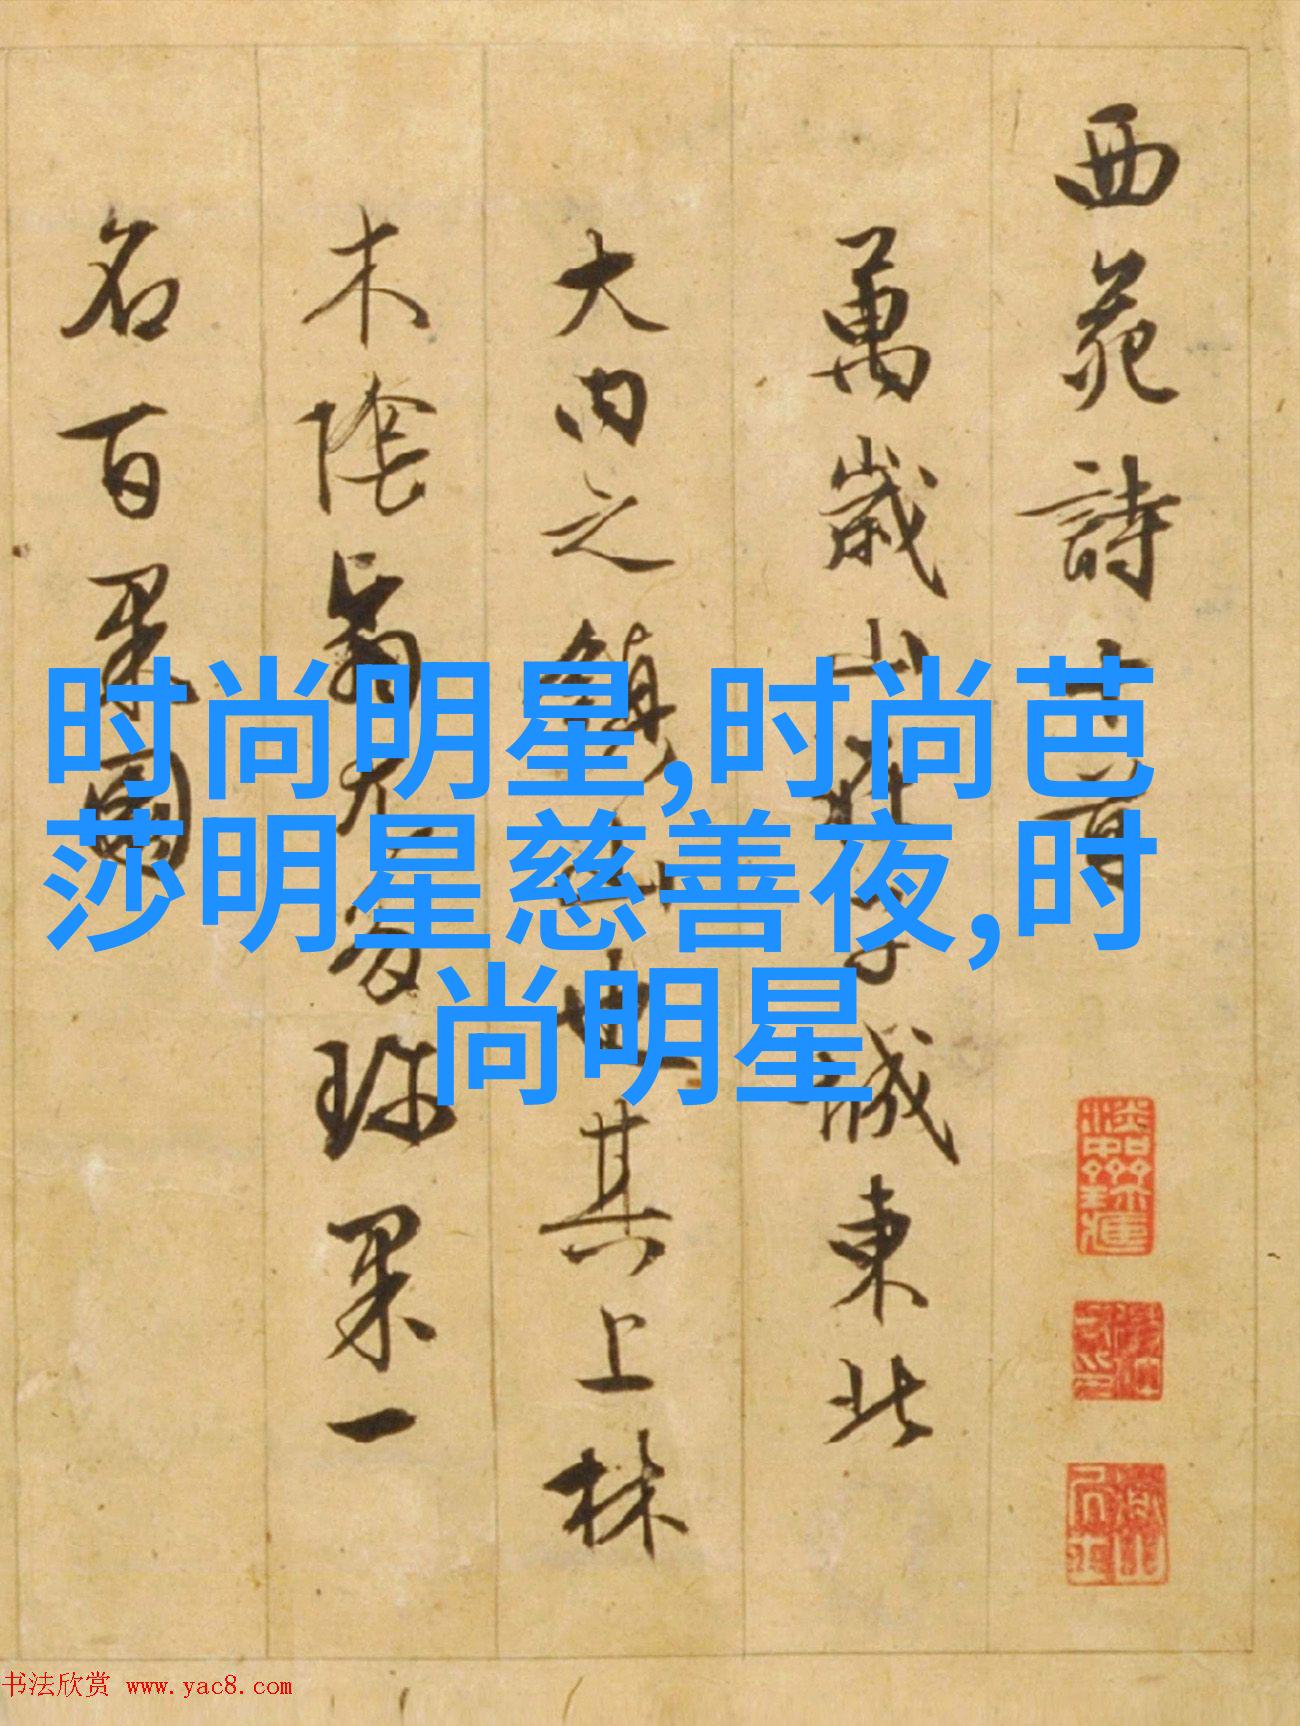 西苑詩十首
萬歲山在子城東北
大内之鎮山也其上林
木陰翳尤多珍果一
名百果園
时尚明星,时尚芭
莎明星慈善夜,时
尚明星
书法欣赏 www.yac8.com